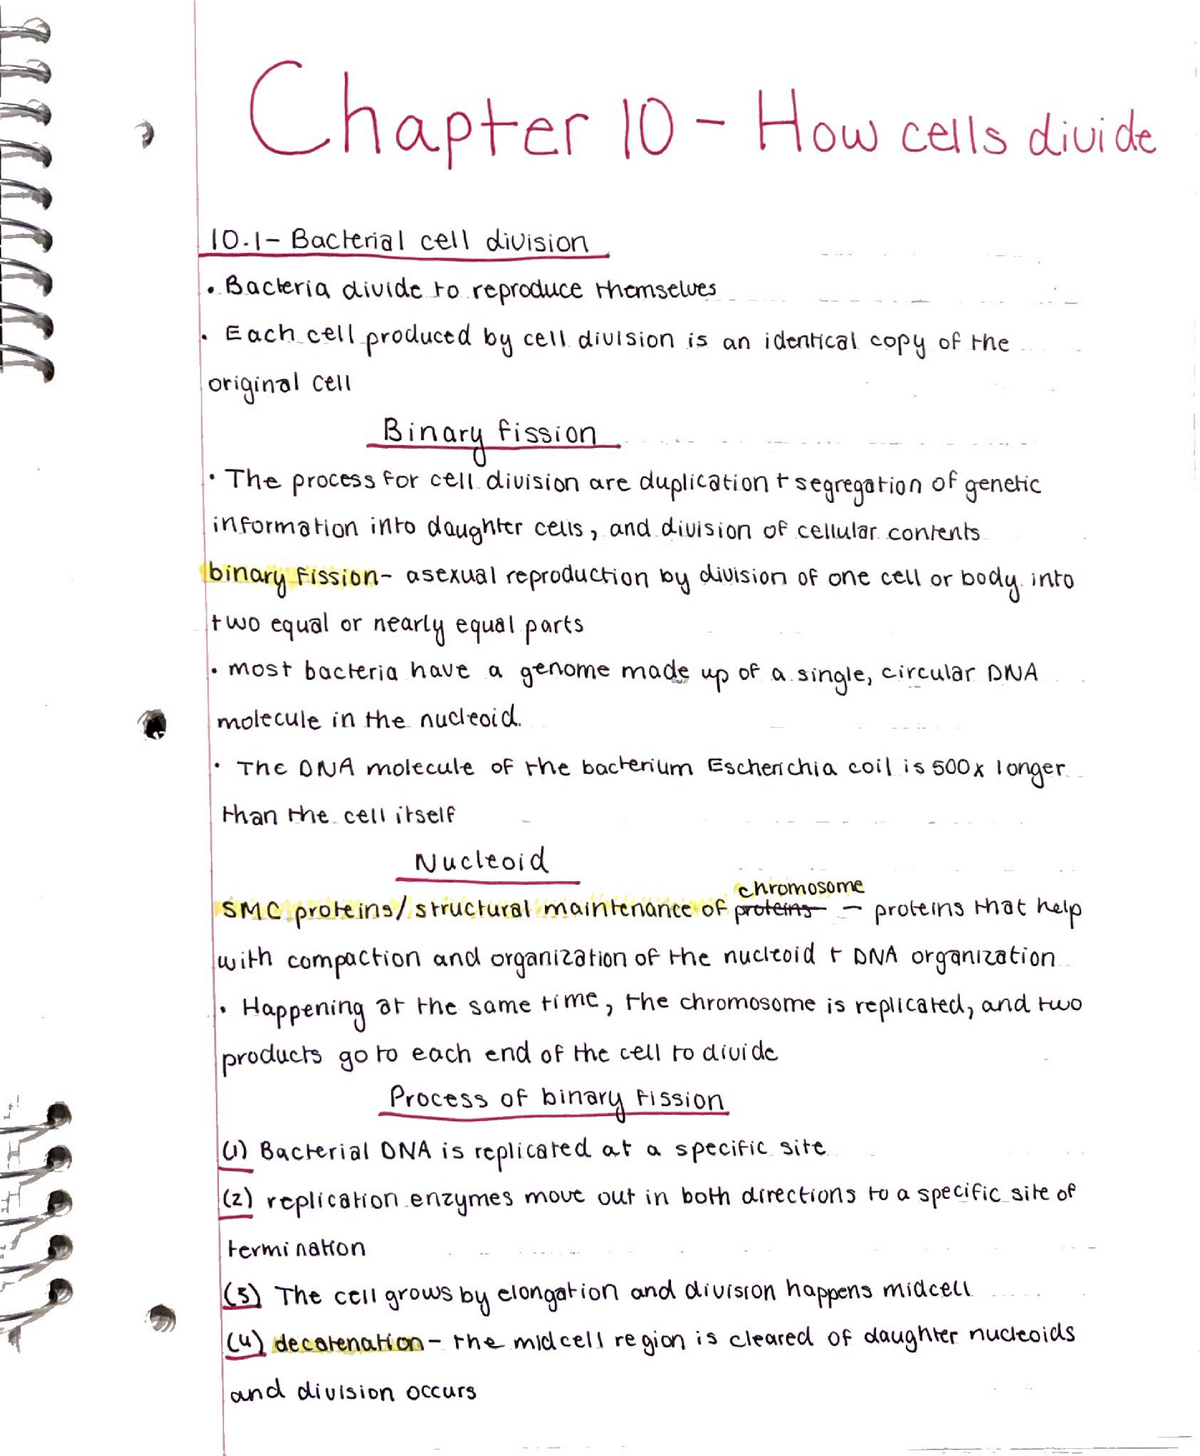 Chapter 10 - How cells divide
10.1- Bacterial cell division
• Bacteria divide to reproduce themselves
• Each cell produced by cell division is an identical copy of the
original cell
Binary fission
• The process for cell division are duplication + segregation of genetic
information into daughter cells, and division of cellular contents
binary fission- asexual reproduction by division of one cell or body into
two equal or nearly equal parts
• most bacteria have a genome made up of a single, circular DNA
molecule in the nucleoid.
• The DNA molecule of the bacterium Escherichia coil is 500x longer
than the cell itself
Nucleoid
chromosome
SMC proteins/structural maintenance of proteins - proteins that help
with compaction and organization of the nucleoid + DNA organization
• Happening at the same time, the chromosome is replicated, and two
products go to each end of the cell to divide
Process of binary fission
(1) Bacterial DNA is replicated at a specific site
(2) replication enzymes move out in both directions to a specific site of
termination
(3) The cell grows by elongation and division happens midcell
(4) decatenation- the midcell region is cleared of daughter nucleoids
and division occurs